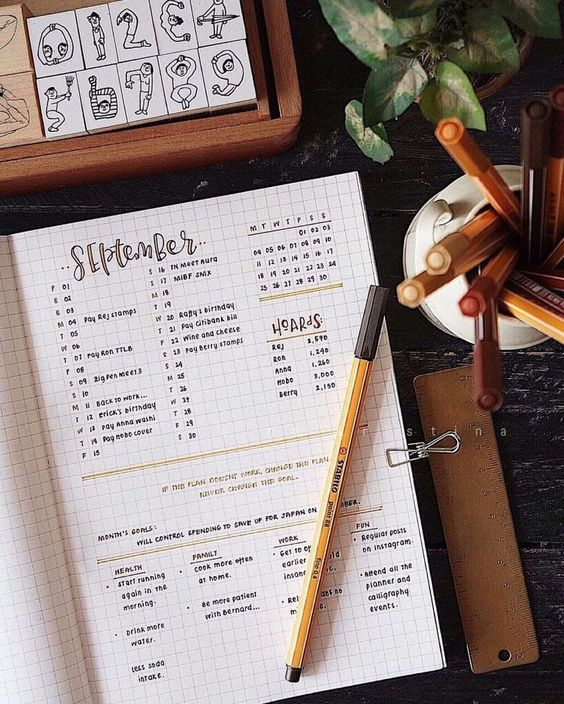 September
F 01
S 02
S 03
M 04 Pay Rcj stamps
T 05
W 06
T 07 Pay Ron TTLB
F 08
S 09 Big Pen Meet 3
S 10
M 11 Back to work...
T 12 Erick's birthday
W 13 Pay Anna washi
T 14 Pay Hobo cover
F 15
S 16 TN Meet Aura
S 17 MIBF SMX
M 18
T 19
W 20 Raffy's birthday
T 21 Pay Citibank bill
F 22 Wine and cheese
S 23 Pay Berry stamps
S 24
M 25
T 26
W 27
T 28
F 29
S 30
M T W T F S S
01 02 03
04 05 06 07 08 09 10
11 12 13 14 15 16 17
18 19 20 21 22 23 24
25 26 27 28 29 30
HOARDS:
Rcj 2,590
Ron 1,240
Anna 1,260
Hobo 3,000
Berry 2,150
IF THE PLAN DOESN'T WORK, CHANGE THE PLAN
NEVER CHANGE THE GOAL.
MONTH'S GOALS:
WILL CONTROL SPENDING TO SAVE UP FOR JAPAN ON
HEALTH
• Start running
again in the
morning.
• Drink more
water.
• Less soda
intake.
FAMILY
• Cook more often
at home.
• Be more patients
with Bernard...
WORK
• Get to
earlier
FUN
• Regular posts
on Instagram.
• Attend all the
planner and
calligraphy
events.
STABILO
point 88
fine 0.4